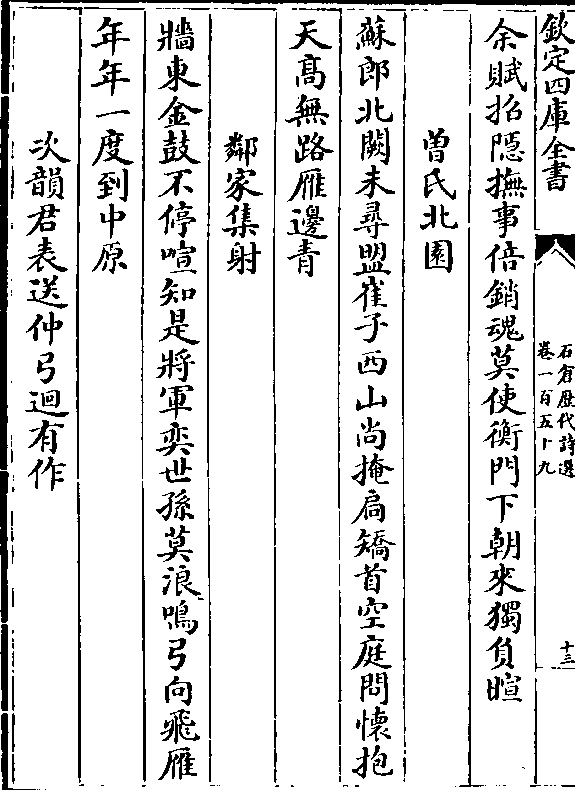 欽定四庫全書
石倉歴代詩選
卷一百五十九
十三
余賦招隠撫事倍銷魂莫使衡門下朝來獨負暄
曽氏北園
蘇郎北闕未尋盟崔子西山尚掩扃矯首空庭問懐抱
天髙無路雁邊青
鄰家集射
牆東金鼓不停喧知是將軍奕世孫莫浪鳴弓向飛雁
年年一度到中原
次韻君表送仲弓迴有作